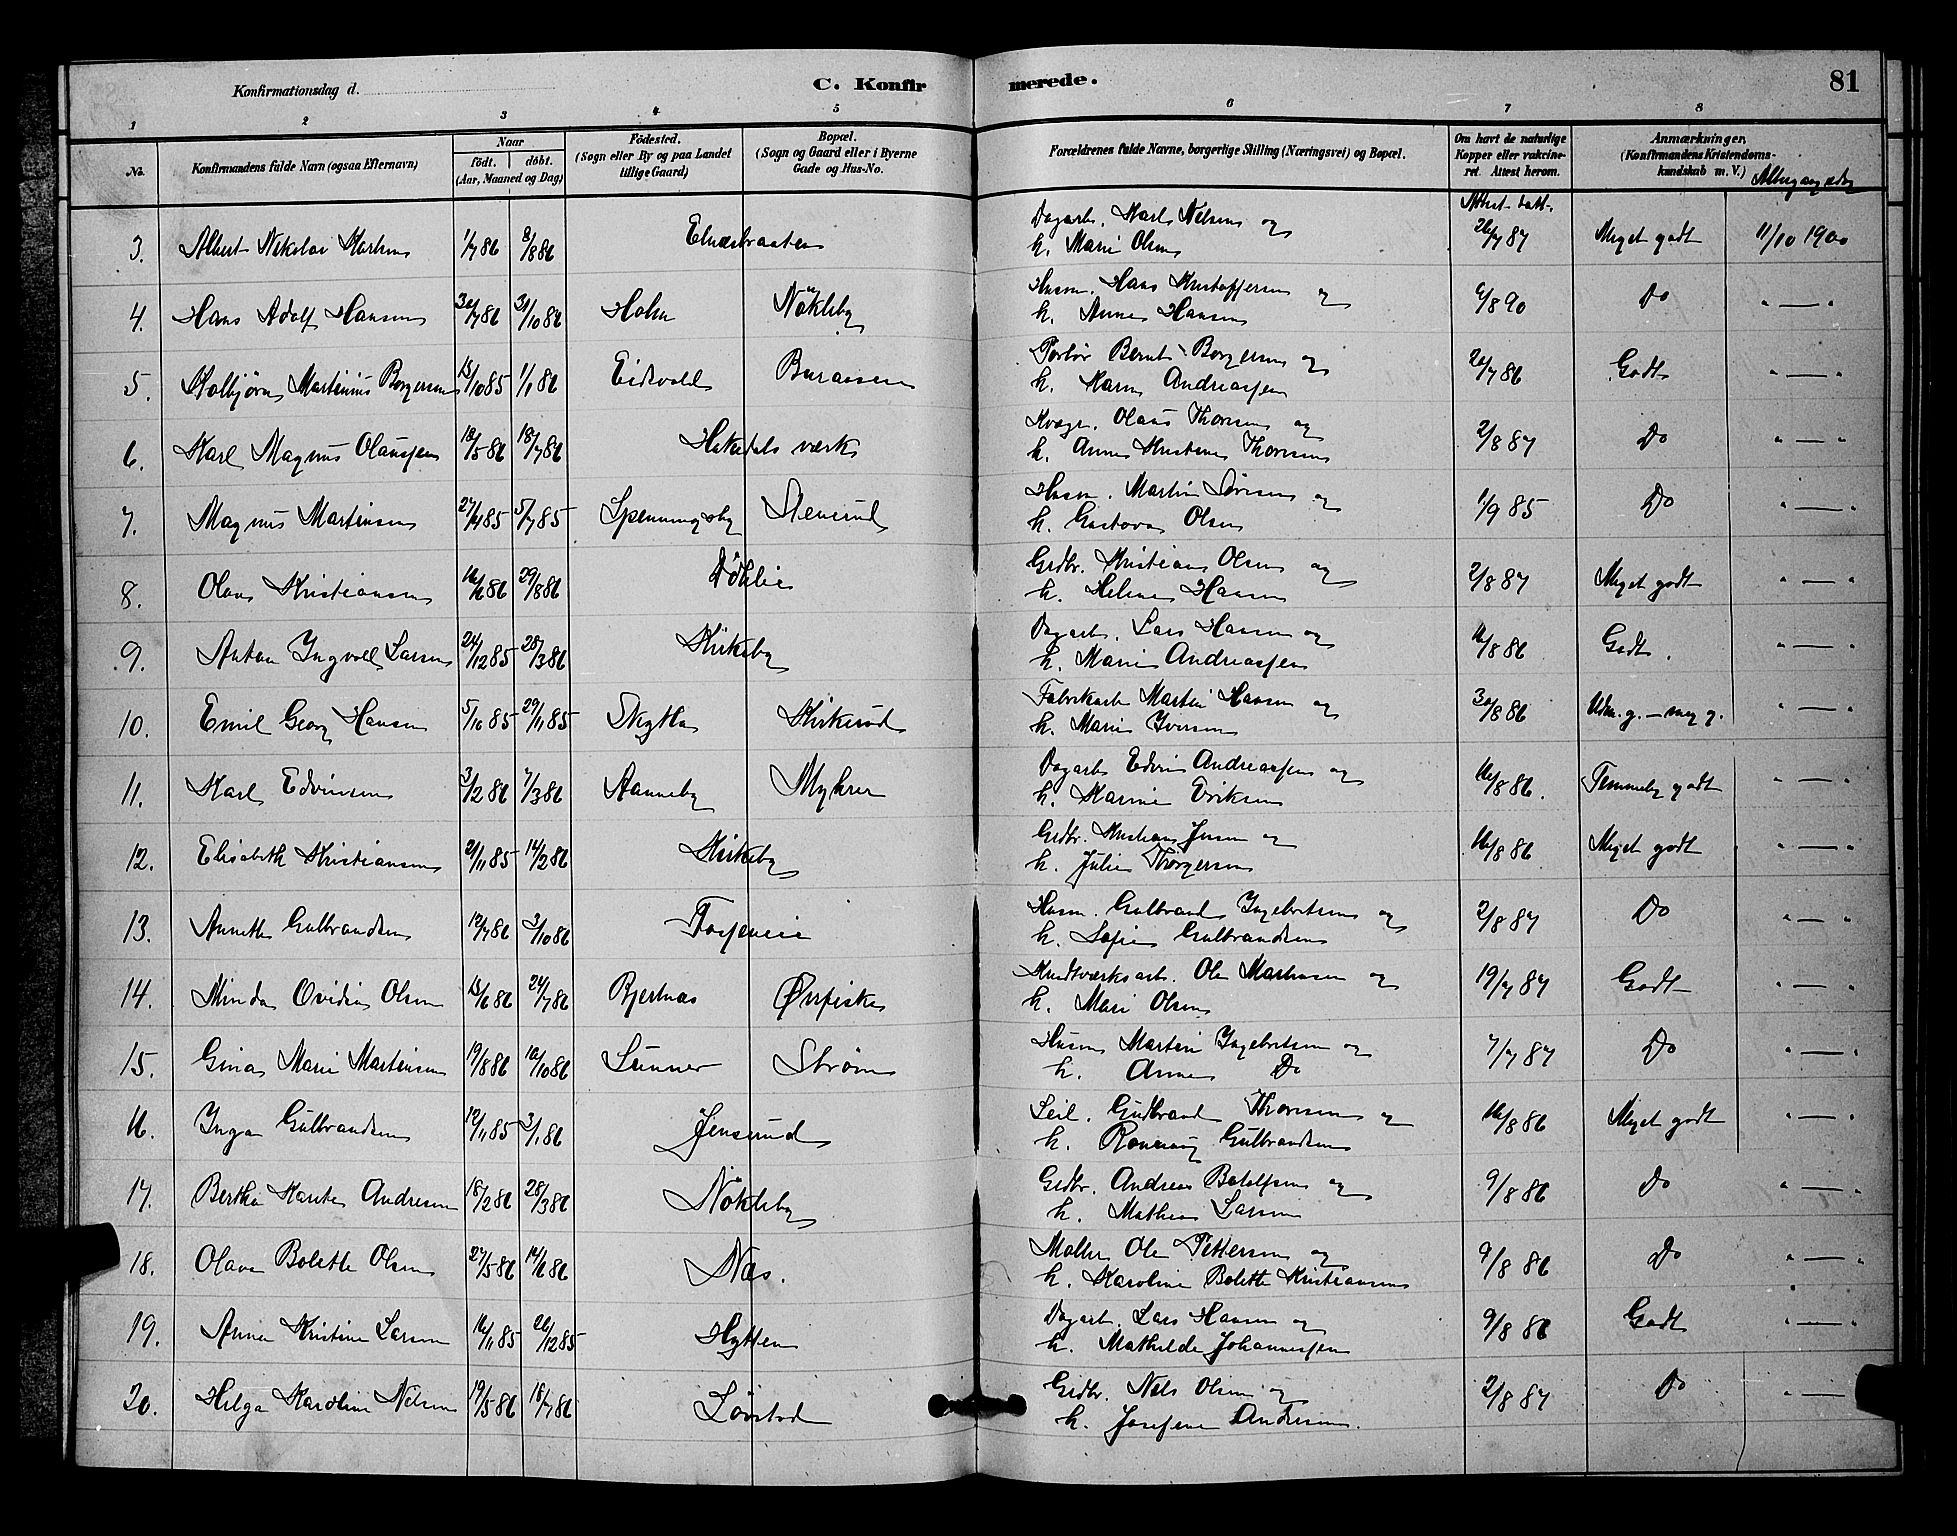 Konfirmationsdag d.
C. Konfirmerede.
81
1 2 3 4 5 6 7 8
No.
Konfirmandens fulde Navn (ogsaa Efternavn)
Naar
födt. döbt.
(Aar, Maaned og Dag)
Födested.
(Sogn eller By og paa Landet
tillige Gaard)
Bopæl.
(Sogn og Gaard eller i Byerne
Gade og Hus-No.
Forældrenes fulde Navne, borgerlige Stilling (Næringsvei) og Bopæl.
Om havt de naturlige
Kopper eller vakcine-
ret. Attest herom.
Anmærkninger.
(Konfirmandens Kristendoms-
kundskab m. V.)
3. Albert Nikolai Karlsen 1/7 86 8/8 86 Dagarb. Karl Nilsen og
h. Marie Olsen 26/7 87 Meget godt 11/10 1900
4. Hans Adolf Hansen 30/7 86 31/10 86 Holm Nökleby Husm. Hans Kristoffersen og
h. Anne Hansen 6/8 90 Do " — "
5. Kolbjörn Martinius Borgersen 13/10 85 1/1 86 Eidsvold Buraasen Portör Bernt Borgersen og
h. Karen Andreassen 20/7 86 Godt " — "
6. Karl Magnus Olaussen 18/5 86 18/7 86 Hakedals værk Olaus Thoresen og
h. Anne Kristine Thoresen 2/8 87 Do " — "
7. Magnus Martinsen 27/4 85 5/7 85 Spenningsby Stenerud Husm. Martin Sörensen og
h. Gustava Olsen 1/9 85 Do " — "
8. Olaus Kristiansen 16/6 86 29/8 86 Döhlie Grdbr. Kristian Olsen og
h. Helene Hansen 2/8 87 Meget godt " — "
9. Anton Ingvall Larsen 24/12 85 28/3 86 Kirkeby Dagarb. Lars Hansen og
h. Marie Andreassen 16/8 86 Godt " — "
10. Emil Georg Hansen 5/10 85 29/11 85 Skytta Kirkerud Fabrikarb Martin Hansen og
h. Marie Iversen 30/8 86 Udm. g. – meg g. " — "
11. Karl Edvinsen 3/2 86 7/3 86 Aanneby Myhrer Dagarb Edvin Andreassen og
h. Karine Eriksen 16/8 86. Temmelig godt " — "
12. Elisabeth Kristiansen 2/11 85 14/2 86 Kirkeby Grdbr. Kristian Jensen og
h. Julie Thorgersen 16/8 86 Meget godt " — "
13. Annette Gulbrandsen 12/7 86 3/10 86 Fosseneie Husm. Gulbrand Ingebretsen og
h. Sofie Gulbrandsen 2/8 87 Do " — "
14. Minda Ovidia Olsen 13/6 86 24/7 86 Bjertnæs Ørfiske Krudtværksarb. Ole Mathisen og
h. Mari Olsen 19/7 87 Godt " — "
15. Gina Marie Martinsen 19/8 86 10/10 86 Sunner Ström Husm Martin Ingebretsen og
h. Anne Do 7/7 87 Do " — "
16. Inga Gulbrandsen 12/11 85 3/1 86 Jensrud Leil. Gudbrand Thoresen og
h. Gulbrandsen 16/8 86 Meget godt " — "
17. Bertha Karete Andresen 18/2 86 28/3 86 Nökleby Grdbr. Andreas Botolfsen og
h. Mathea Larsen 9/8 86 Do " — "
18. Olava Bolette Olsen 27/5 86 14/6 86 Næs. Möller Ole Pettersen og
h. Karoline Bolette Kristiansen 9/8 86 Do " — "
19. Anna Kristine Larsen 16/11 85 26/12 85 Hytten Dagarb. Lars Hansen og
h. Mathilde Johannessen 9/8 86 Godt " — "
20. Helga Karoline Nilsen 19/5 86 18/7 86 Lövstad Grdbr. Nils Olsen og
h. Josefine Andresen. 2/8 87 Do " — "